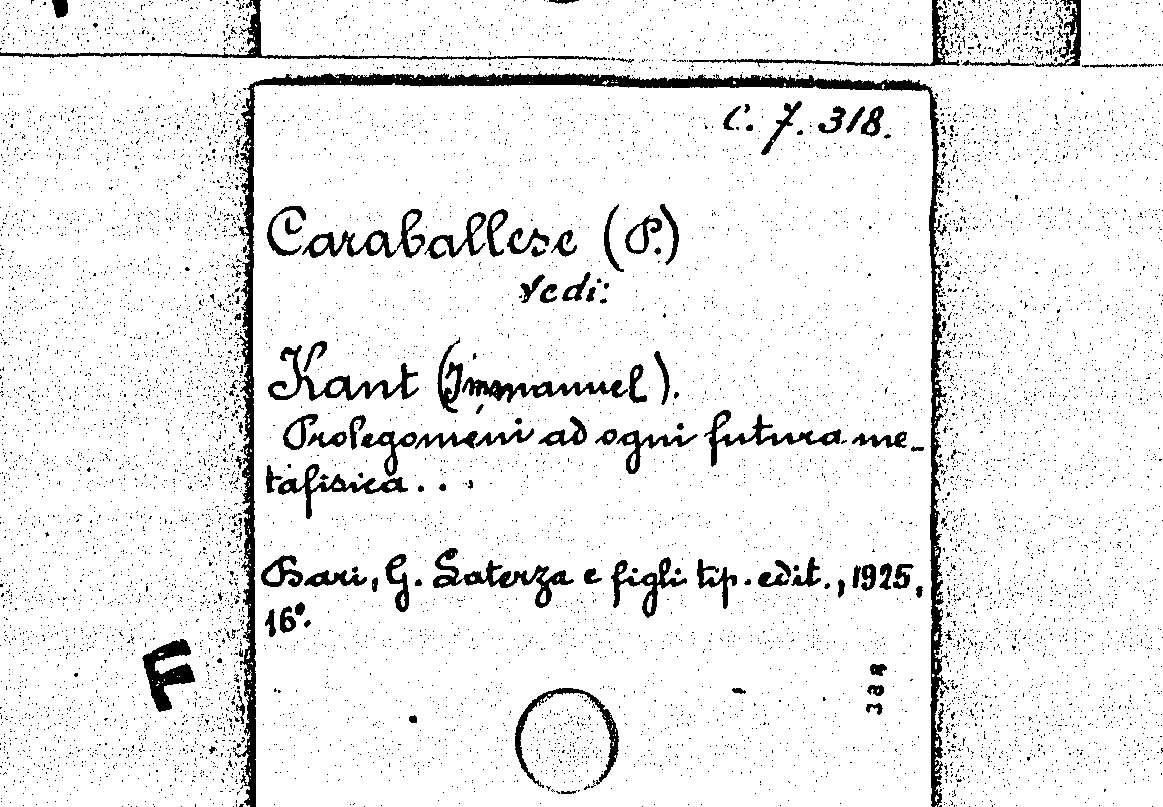 C. 7. 318.
Caraballese (P.)
Vedi:
Kant (Immanuel).
Prolegomeni ad ogni futura me-
tafisica...
Bari, G. Laterza e figli tip. edit., 1925,
16º.
F